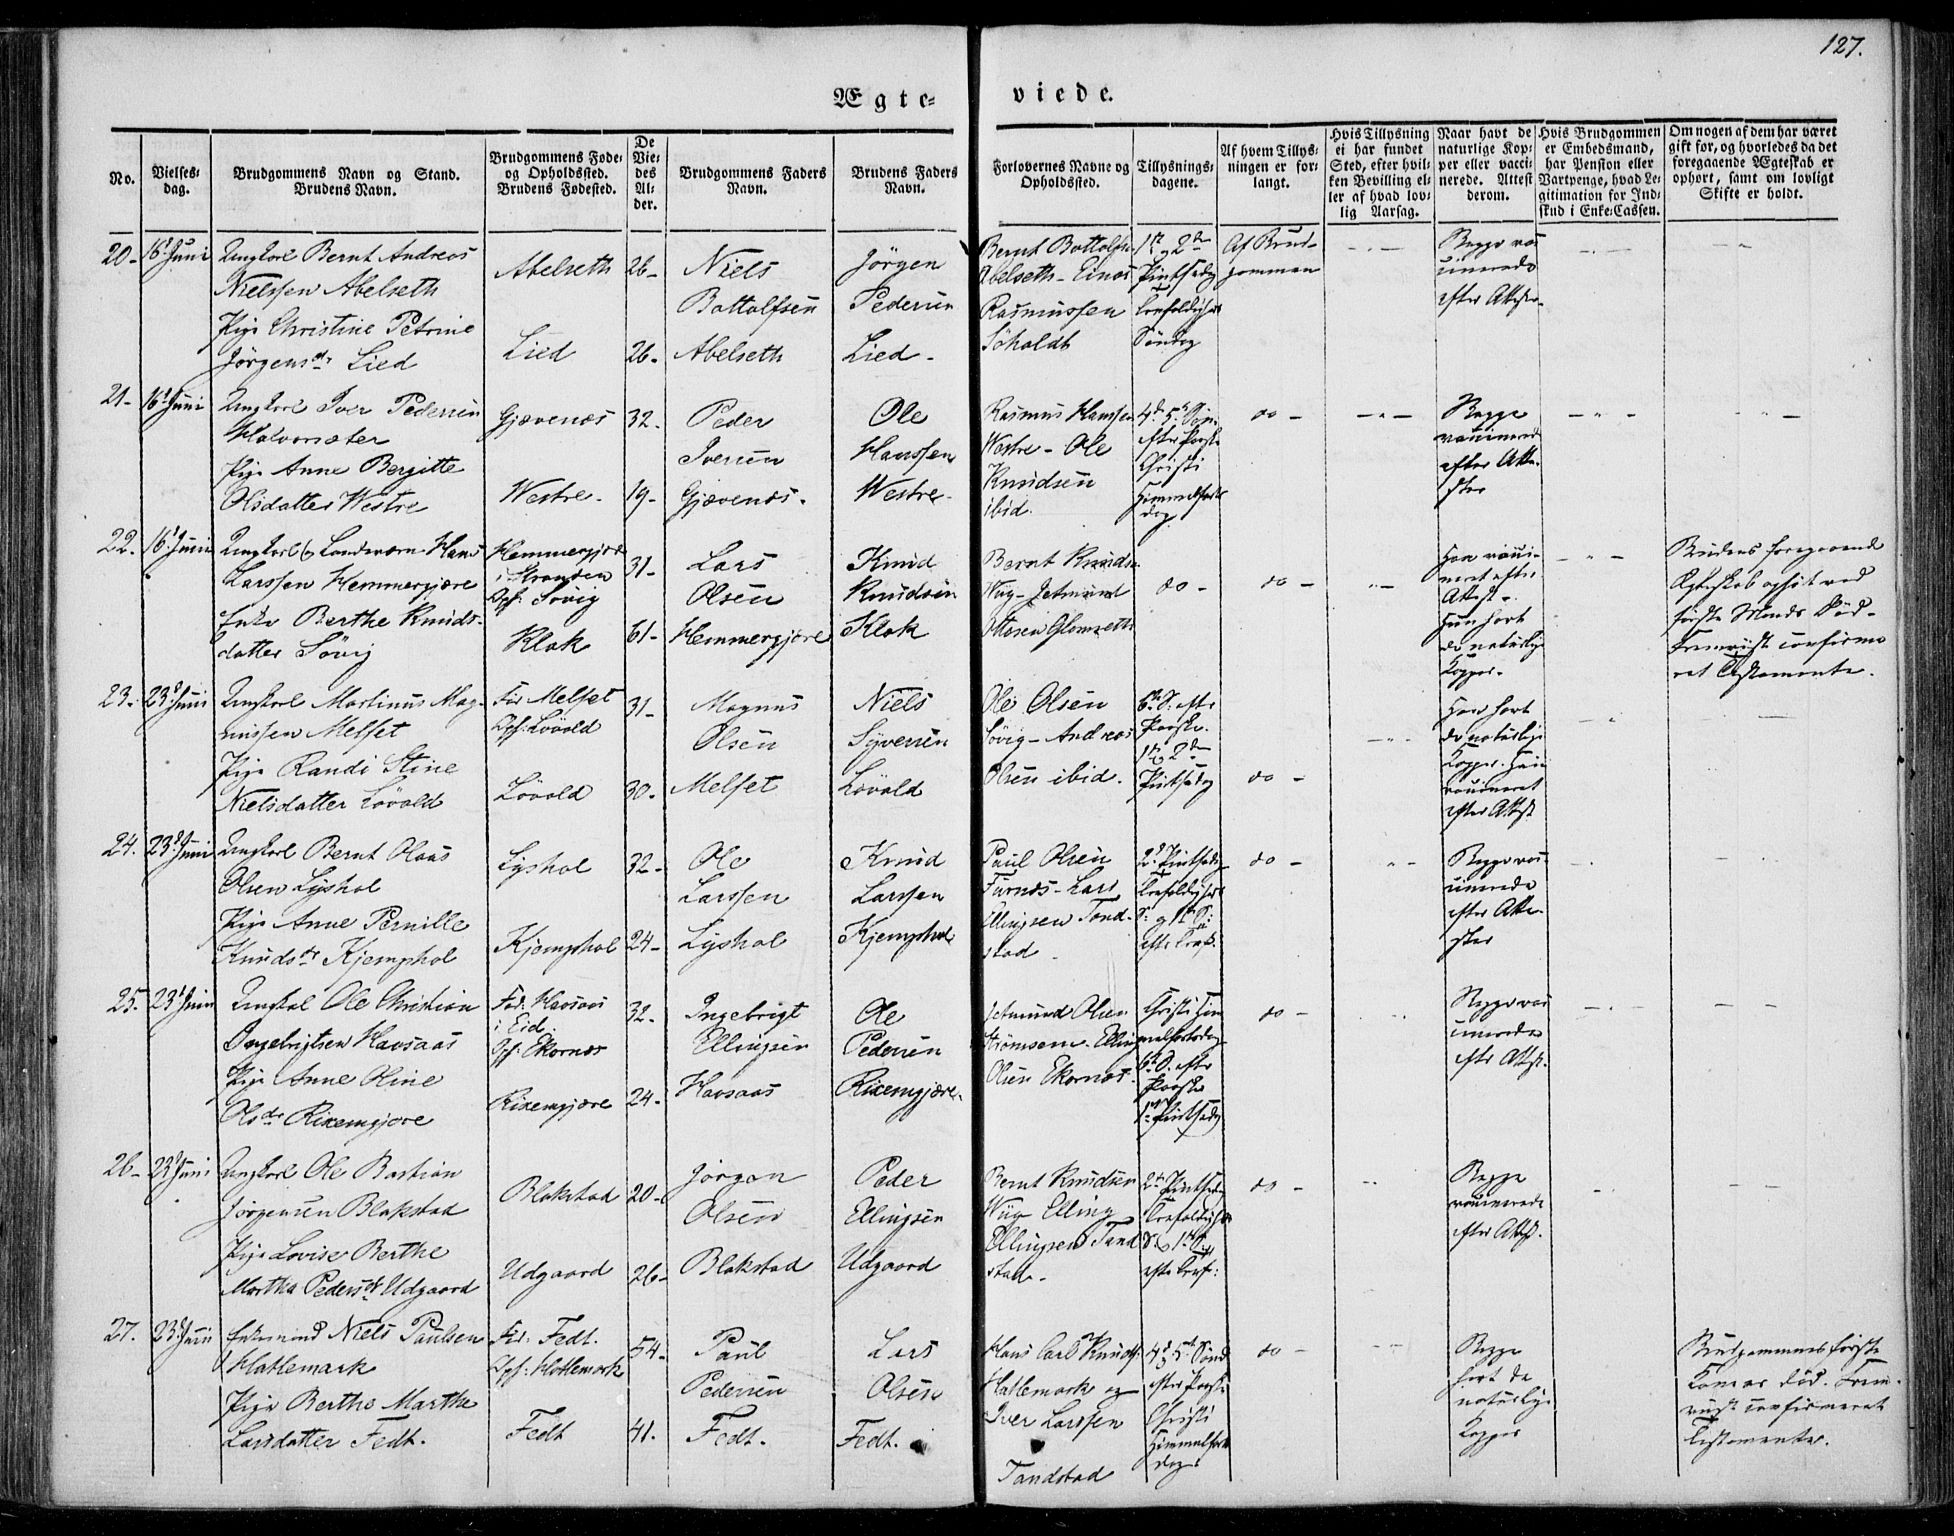 127.
Ægte-
viede.
No.
Vielses-
dag.
Brudgommens Navn og Stand.
Brudens Navn.
Brudgommens Føde-
og Opholdssted.
Brudens Fødested.
De
Vie-
des
Al-
der.
Brudgommens Faders
Navn.
Brudens Faders
Navn.
Forlovernes Navne og
Opholdssted.
Tillysnings-
dagene.
Af hvem Tillys-
ningen er for-
langt.
Hvis Tillysning
ei har fundet
Sted, efter hvil-
ken Bevilling el-
ler af hvad lov-
lig Aarsag.
Naar havt de
naturlige Kop-
per eller vacci-
nerede. Attest
derom.
Hvis Brudgommen
er Embedsmand,
har Pension eller
Vartpenge, hvad Le-
gitimation for Ind-
skud i Enke-Cassen.
Om nogen af dem har været
gift før, og hvorledes da det
foregaaende Ægteskab er
ophørt, samt om lovligt
Skifte er holdt.
20-
16d Juni
Ungkarl Bernt Andreas
Nielssen Abelseth
Pige Christine Petrine
Jörgensdr Lied
Abelseth
Lied
26-
26-
Niels
Bottolfsen
Abelseth
Jörgen
Pedersen
Lied-
Bernt Bottolfs.
Abelseth- Einar
Rasmussen
Söholdt
1st 2den
Pintsedag
Trefoldigheds
Söndag
Af Brud-
gommen
Begge vac-
cinerede
efter Attester.
21-
16d Juni
Ungkarl Iver Pedersen
Halvorsæter
Pige Anne Bergitte
Olsdatter Westre
Gjævenæs
Westre-
32-
19-
Peder
Iversen
Gjævenæs-
Ole
Hanssen
Westre-
Rasmus Hanssen
Westre- Ole
Knudsen
ibid.
4de 5te Søn.
efter Paaske
Christi
Himmelfarts
dag
do -
Begge
vaccinerede
efter Atte-
ster
22-
16d Juni
Ungkarl Landværn Hans
Larssen Hemmergjære
Enke Berthe Knuds-
datter Sövig
Hemmergjær
i Stranden
Opf. Sövig
Klok
31-
61-
Lars
Olsen
Hemmergjære
Knud
Knudsen
Klok
Bernt Knuds.
Wiig- Jetmund
Ottesen Glomseth
do -
do -
Han vacci-
neret efter
Attest-
Hun havt
de naturlige
Kopper.
Brudens foregaaende
Ægteskab ophört ved
förste Mands Död-
Fremviist confirme
ret Testamente.
23-
23d Juni
Ungkarl Martinus Mag-
nussen Melset
Pige Randi Stine
Nielsdatter Lövold
Fød. Melset
Opf. Lövold
Lövold
31-
30-
Magnus
Olsen
Melset
Niels
Syversen
Lövold
Ole Olsen
Sövig- Andreas
Olsen ibid.
6te S. efter
Paaske.
1st 2den
Pintsedag
do -
Han havt
de naturlige
Kopper. Hun
vaccineret
efter Attest
24.
23d Juni
Ungkarl Bernt Olaus
Olsen Lyshol
Pige Anne Pernille
Knudsdr Kjemphol
Lyshol
Kjemphol
32-
24-
Ole
Larssen
Lyshol
Knud
Larssen
Kjemphol
Paul Olsen
Furnæs- Lars
Ellingsen Tand-
stad -
2d Pintsedag
Trefoldigheds
S: og 1st S:
efter Tref.
do -
Begge vac-
cinerede
efter Atte-
ster
25.
23d Juni
Ungkarl Ole Christian
Ingebrigtsen Havsaas
Pige Anne Oline
Olsdr Rixemgjære
Fød. Havsaas
i Eid.
Opf: Ekornæs
Rixemgjære
32-
24-
Ingebrigt
Ellingsen
Havsaas
Ole
Pedersen
Rixemgjære.
Jetmund Olsen
Strömsem. Elling
Olsen Ekornæs
Christi Him
melfartsdag
6te S. efter
Paaske
1st Pintsedag
do -
Begge vac-
cinerede
efter Attest.
26-
23d Juni
Ungkarl Ole Bastian
Jörgensen Blakstad
Pige Lovise Berthe
Martha Pedersdr Udgaard
Blakstad
Udgaard
20-
26-
Jörgen
Olsen
Blakstad
Peder
Ellingsen
Udgaard
Bernt Knudsen
Wiig- Elling
Ellingsen Tand
stad-
2d Pintsedag
Trefoldigheds
S. og 1st S.
efter Tref:
do -
Begge
vaccinerede
efter Attest.
27.
23d Juni
Enkemand Niels Paulsen
Hatlemark
Pige Berthe Marthe
Larsdatter Fedt.
Fød. Fedt.
Opf: Hatlemark
Fedt
54-
41.
Paul
Pedersen
Fedt.
Lars
Olsen
Fedt.
Hans Carl Knuds.
Hatlemark og
Iver Larssen
Tandstad
4d 5te Sönd
efter Paaske
Christi
Himmelfarts
dag.
do -
Begge
havt de
naturlige
Kopper
Brudgommens förste
Kone er död. Frem-
viist confirmeret
Testamente.